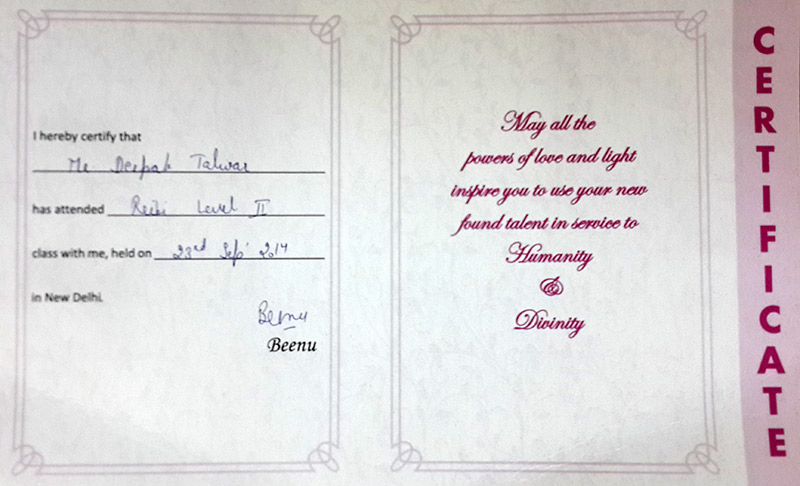 I hereby certify that
Mr. Deepak Talwar
has attended Reiki Level II
class with me, held on 23rd Sep' 2014
in New Delhi.
Beenu
Beenu
May all the
powers of love and light
inspire you to use your new
found talent in service to
Humanity
&
Divinity
CERTIFICATE